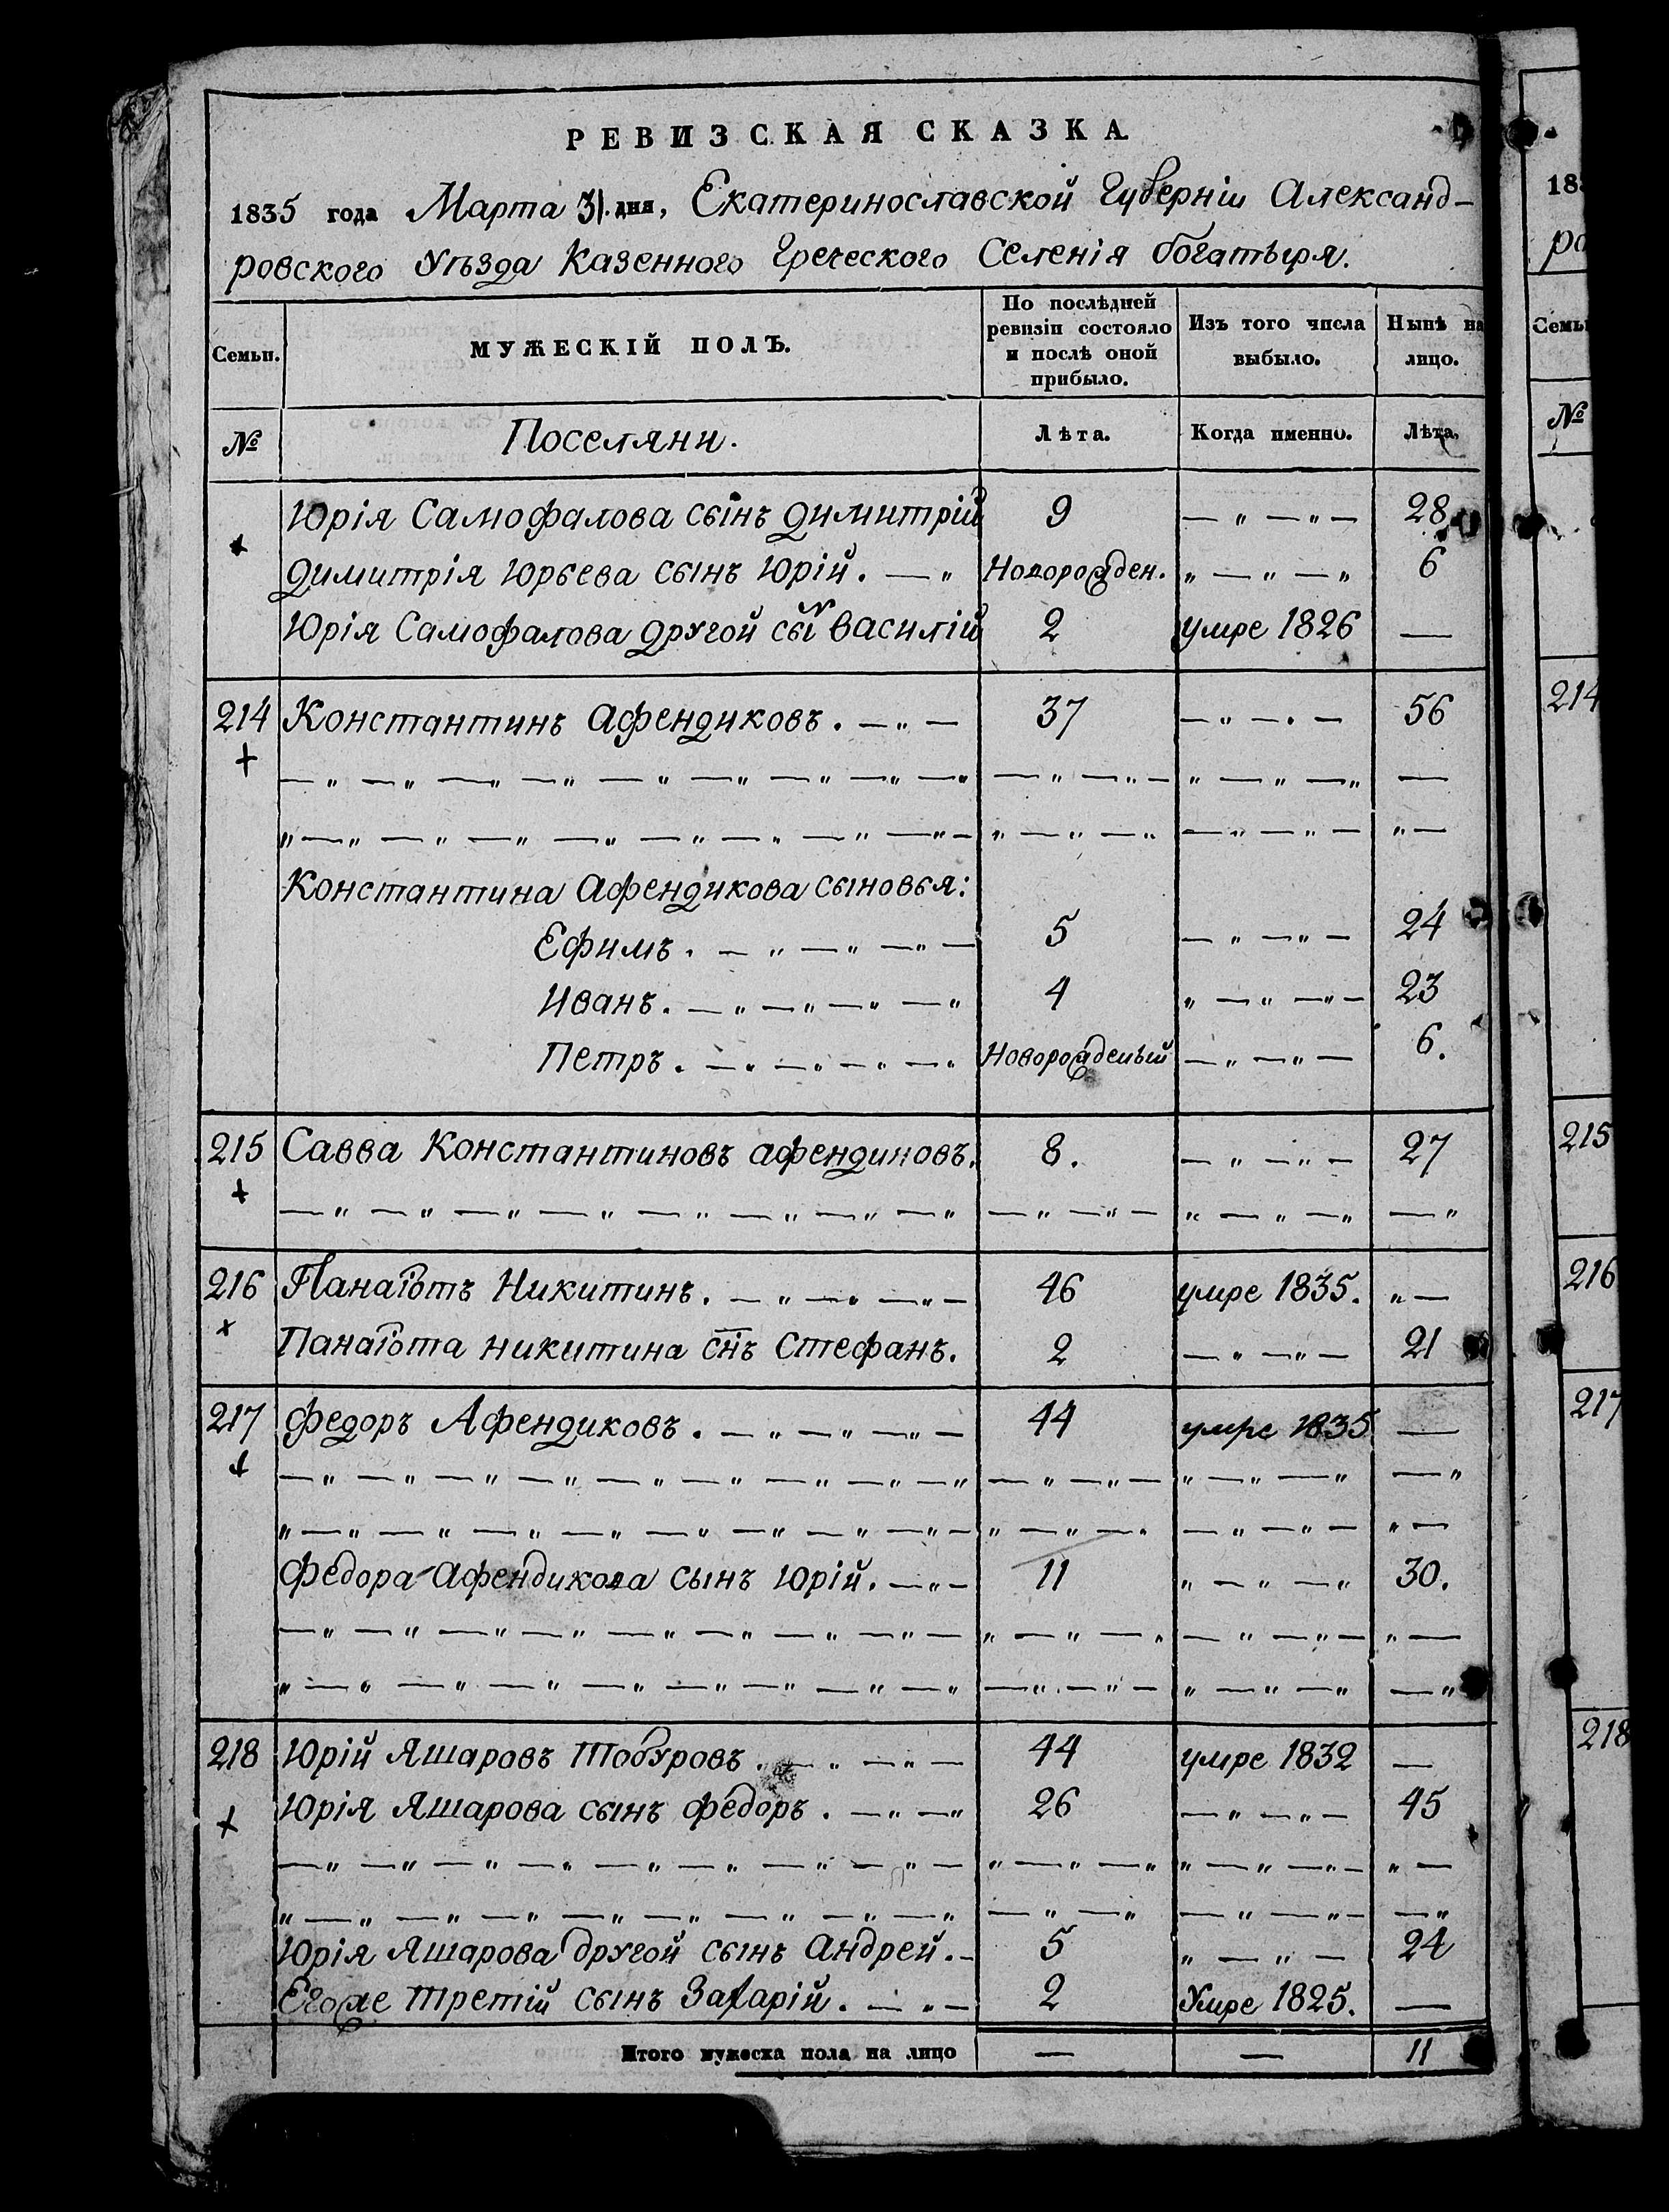 РЕВИЗСКАЯ СКАЗКА.
1835 года Марта 31. дня, Екатеринославской Губерніи Александ-
ровского Уѣзда Казенного Греческого Селенія богатыря.
Семьи. МУЖЕСКІЙ ПОЛЪ. По послѣдней ревизіи состояло и послѣ оной прибыло. Изъ того числа выбыло. Нынѣ на лицо.
№ Поселяни. Лѣта. Когда именно. Лѣта.
Юрія Самофалова сынъ димитрій 9 — " — " — 28
димитрія Юрьева сынъ Юрій. — " Новорожден. " — " — " 6
Юрія Самофалова другой сын василій 2 умре 1826 —
214 Константинъ афендиковъ. — " — 37 — " — " — 56
Константина афендикова сыновья:
Ефимъ. — " — " — " — 5 — " — " — 24
Иванъ. — " — " — " — " 4 " — " — " — 23
Петръ. — " — " — " — " Новорожденый — " — " — 6.
215 Савва Константиновъ афендиковъ. 8. — " — " — 27
216 Панаіотъ Никитинъ. — " — " — " — 46 умре 1835. " —
Панаіота никитина снъ Стефанъ. 2 — " — " — 21
217 Федоръ Афендиковъ. — " — " — " — 44 умре 1835 —
Федора афендикова сынъ Юрій. — " — 11 " — " — " 30.
218 Юрій Яшаровъ Тобуровъ. — " — " — 44 умре 1832 —
Юрія Яшарова сынъ федоръ. — " — " 26 — " — " — 45
Юрія Яшарова другой сынъ андрей. — 5 " — " — 24
Егоже третій сынъ Захарій. — " — 2 Умре 1825. —
Итого мужеска пола на лицо — — 11
18
ро
Семьи
№
214
215
216
217
218